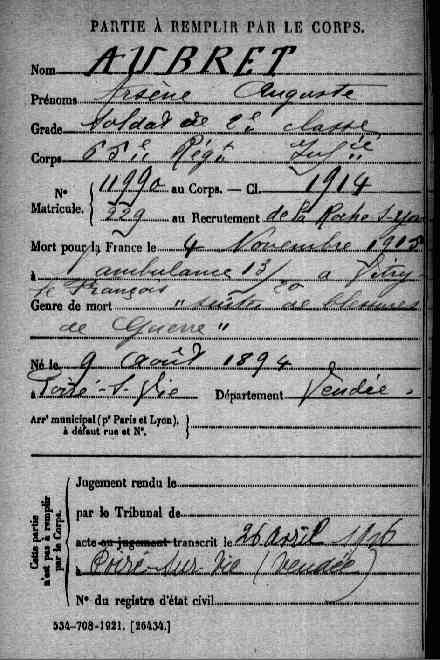 PARTIE À REMPLIR PAR LE CORPS.
Nom AUBRET
Prénoms Arsène Auguste
Grade Soldat de 2e classe
Corps Régt Infie
N° Matricule. 11990 au Corps. — Cl. 1914
229 au Recrutement de la Roche s-Yon
Mort pour la France le 4 Novembre 1915
à l'ambulance 13/ à Vitry-
le François
Genre de mort "suites de blessures
de Guerre"
Né le 9 août 1894
à Poiré-s-Vie Département Vendée.
Arrt municipal (pr Paris et Lyon),
à défaut rue et N°.
Cette partie n'est pas à remplir par le Corps.
Jugement rendu le
par le Tribunal de
acte ou jugement transcrit le 26 avril 1916
à Poiré-sur-Vie (Vendée)
N° du registre d'état civil
534-708-1921. [26434.]